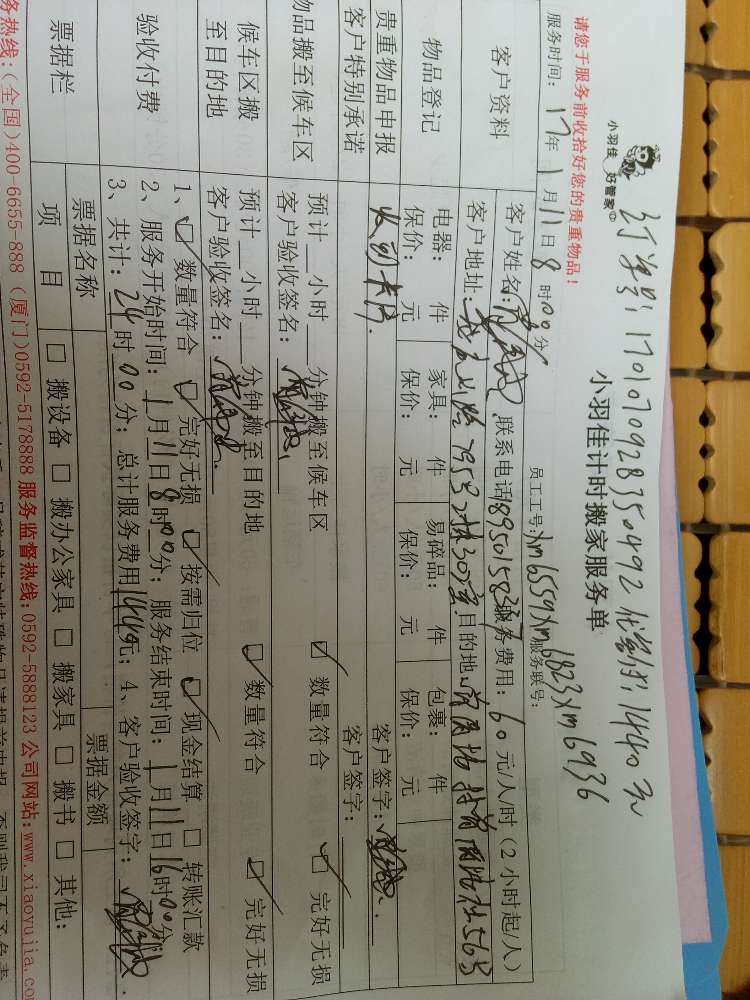 订单号:1701070928350492 1440元
小羽佳 好管家
小羽佳计时搬家服务单
请您于服务前收拾好您的贵重物品!
员工工号:xm6559 xm6823 xm6936 服务联号:
服务时间: 17年 1月11日 8时00分
客户资料
客户姓名: 联系电话 服务费用: 60元/人/时(2小时起/人)
客户地址: 795号 目的地:
物品登记
电器: 件 家具: 件 易碎品: 件 包裹: 件
保价: 元 保价: 元 保价: 元 保价: 元 客户签字:
贵重物品申报
客户特别承诺
客户签字:
物品搬至候车区
预计 小时 分钟搬至候车区 ☑ 数量符合 ☑ 完好无损
客户验收签名:
候车区搬
至目的地
预计 小时 分钟搬至目的地 ☑ 数量符合 ☑ 完好无损
客户验收签名:
验收付费
1、☑ 数量符合 ☑ 完好无损 ☑ 按需归位 ☑ 现金结算 □ 转账汇款
2、服务开始时间: 1月11日8时00分; 服务结束时间: 1月11日16时00分
3、共计: 24时00分; 总计服务费用1440元; 4、客户验收签字:
票据栏
票据名称 票据金额
项 目 □ 搬设备 □ 搬办公家具 □ 搬家具 □ 搬书 □ 其他:
务热线:(全国)400-6655-888(厦门)0592-5178888 服务监督热线:0592-5888123 公司网站:www.xiaoyujia.co